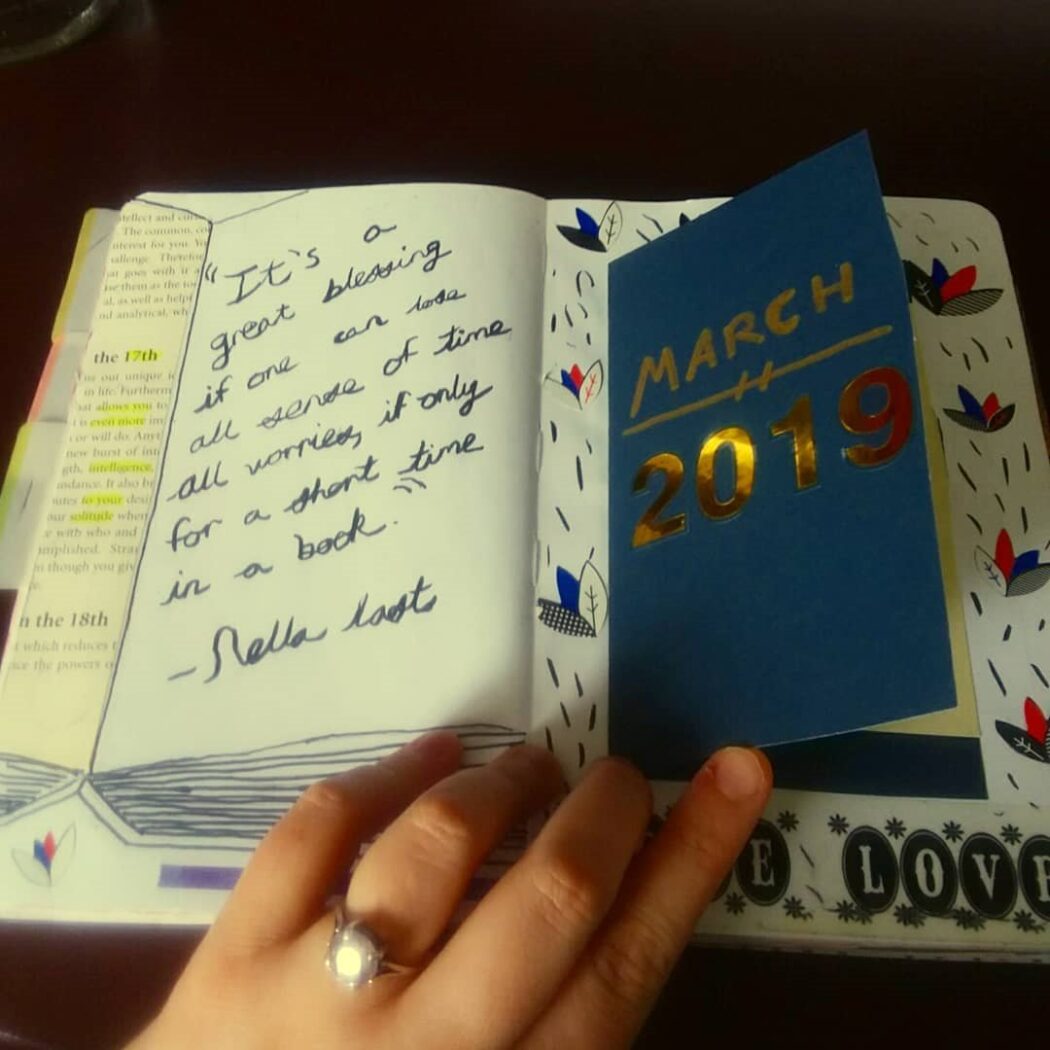 tellect and
The common,
nterest for you.
allenge.
at goes with it
use them as the
al, as well as
nd analytical,
the 17th
in life.
hat allows you to
even more
or will do.
new burst of
gth, intelligence,
undance. It also
utes to your
our solitude when
e with who and
mplished.
though you
n the 18th
which reduces
the powers
"It's a
great blessing
if one can lose
all sense of time
all worries, if only
for a short time
in a book."
- Nella last
MARCH
2019
E LOVE